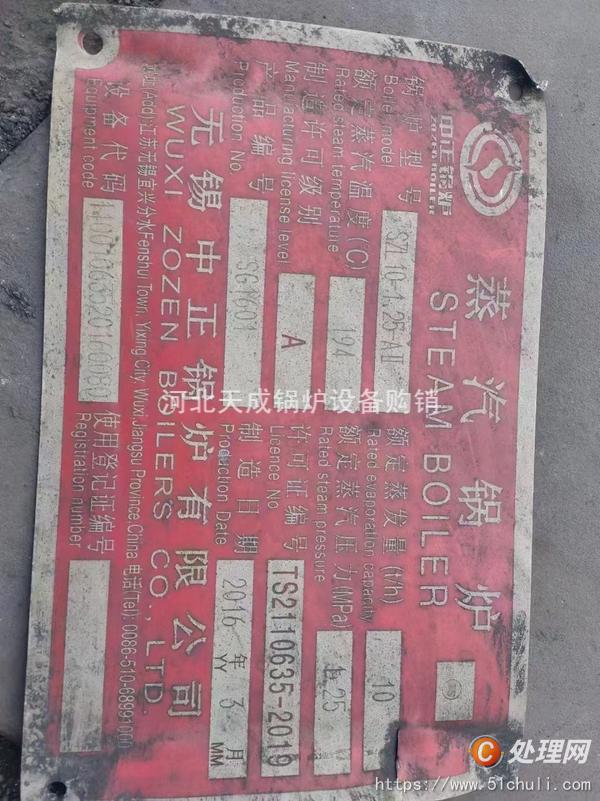 中正锅炉
ZOZEN BOILER
蒸汽锅炉
STEAM BOILER
锅炉型号
Boiler model
SZL10-1.25-AII
额定蒸发量(t/h)
Rated evaporation capacity
10
额定蒸汽温度(℃)
Rated steam temperature
194
额定蒸汽压力(MPa)
Rated steam pressure
1.25
制造许可级别
Manufacturing license level
A
许可证编号
Licence No.
TS2110635-2019
产品编号
Production No.
制造日期
Production Date
2016年3月
YY MM
无锡中正锅炉有限公司
WUXI ZOZEN BOILERS CO., LTD.
地址(Add):江苏无锡宜兴分水Fenshui Town, Yixing City, Wuxi Jiangsu Province,China 电话(Tel): 0086-510-68991000
设备代码
Equipment code
使用登记证编号
Registration number
河北天成锅炉设备购销
C处理网
https://www.51chuli.com/